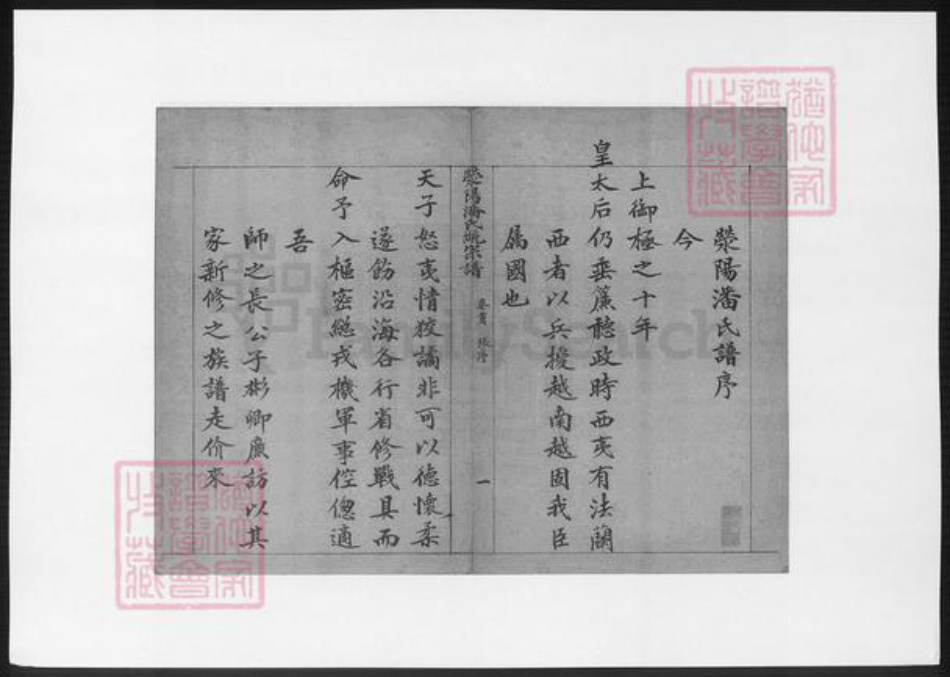 滎陽潘氏譜序
今
上御極之十年
皇太后仍垂簾聽政時西夷有法蘭
西者以兵擾越南越固我臣
屬國也
滎陽潘氏統宗譜 卷首 張序 一
天子怒夷情狡譎非可以德懷柔
遂飭沿海各行省修戰具而
命予入樞密總戎機軍事倥傯適
吾
師之長公子彬卿廉訪以其
家新修之族譜走价來
FamilySearch
譜學會
收藏
譜學會
收藏